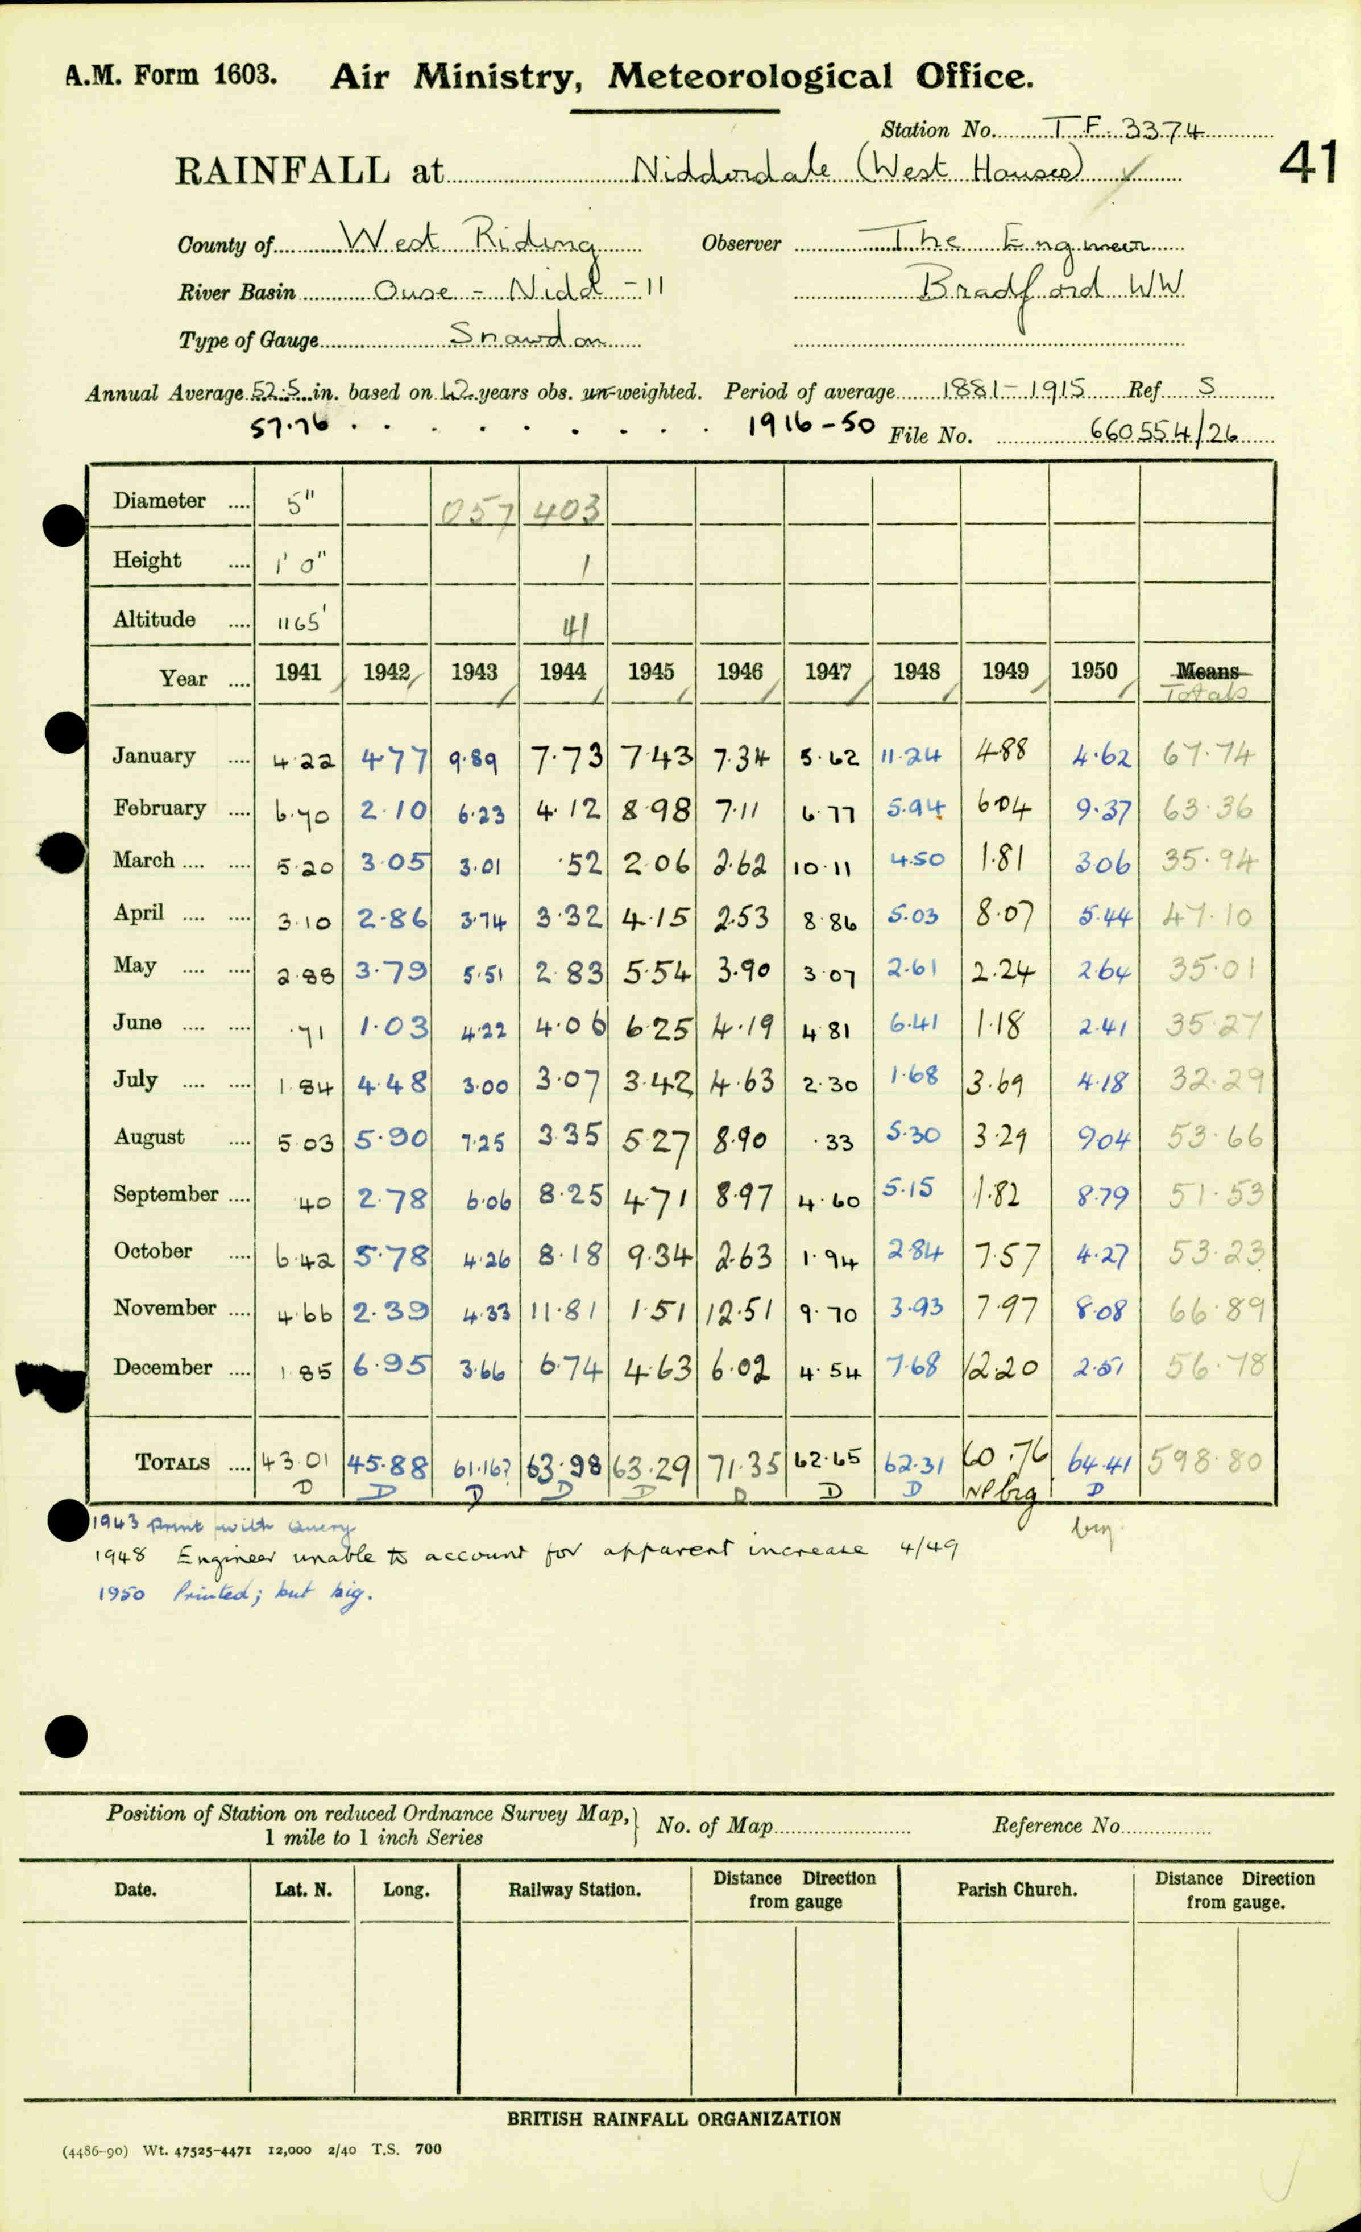 A.M. Form 1603. Air Ministry, Meteorological Office.
Station No. T.F. 3374
41
RAINFALL at Nidderdale (West Houses) ✓
County of West Riding Observer The Engineer
River Basin Ouse - Nidd - 11 Bradford WW
Type of Gauge Snowdon
Annual Average 52.5 in. based on 42 years obs. un-weighted. Period of average 1881-1915 Ref S
57.76 . . . . . . . . . 1916-50 File No. 660554/26
Diameter .... 5" 057 403
Height .... 1' 0" 1
Altitude .... 1165' 41
Year .... 1941 1942 1943 1944 1945 1946 1947 1948 1949 1950 Means
Totals
January .... 4.22 4.77 9.89 7.73 7.43 7.34 5.62 11.24 4.88 4.62 67.74
February .... 6.70 2.10 6.23 4.12 8.98 7.11 6.77 5.94 6.04 9.37 63.36
March .... .... 5.20 3.05 3.01 .52 2.06 2.62 10.11 4.50 1.81 3.06 35.94
April .... .... 3.10 2.86 3.74 3.32 4.15 2.53 8.86 5.03 8.07 5.44 47.10
May .... .... 2.88 3.79 5.51 2.83 5.54 3.90 3.07 2.61 2.24 2.64 35.01
June .... .... .71 1.03 4.22 4.06 6.25 4.19 4.81 6.41 1.18 2.41 35.27
July .... .... 1.84 4.48 3.00 3.07 3.42 4.63 2.30 1.68 3.69 4.18 32.29
August .... 5.03 5.90 7.25 3.35 5.27 8.90 .33 5.30 3.29 9.04 53.66
September .... .40 2.78 6.06 8.25 4.71 8.97 4.60 5.15 1.82 8.79 51.53
October .... 6.42 5.78 4.26 8.18 9.34 2.63 1.94 2.84 7.57 4.27 53.23
November .... 4.66 2.39 4.33 11.81 1.51 12.51 9.70 3.93 7.97 8.08 66.89
December .... 1.85 6.95 3.66 6.74 4.63 6.02 4.54 7.68 12.20 2.51 56.78
TOTALS .... 43.01 45.88 61.16? 63.98 63.29 71.35 62.65 62.31 60.76 64.41 598.80
D D D D D D D D NP big D
1943 Print with Query big.
1948 Engineer unable to account for apparent increase 4/49
1950 Printed; but big.
Position of Station on reduced Ordnance Survey Map, 1 mile to 1 inch Series } No. of Map Reference No.
Date. Lat. N. Long. Railway Station. Distance Direction from gauge Parish Church. Distance Direction from gauge.
BRITISH RAINFALL ORGANIZATION
(4486-90) Wt. 47525-4471 12,000 2/40 T.S. 700